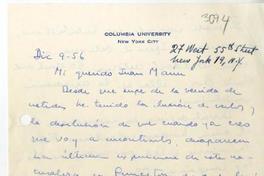 3094
COLUMBIA UNIVERSITY
NEW YORK CITY
27 West 55th Street
New York 19, N.Y.
Dic 9-56
Mi querido Juan
Desde que supe de la venida de
ustedes he tenido la ilusión de verlos, y
la desilusión de que cuando ya creo
que voy a encontrarlos, desaparecen